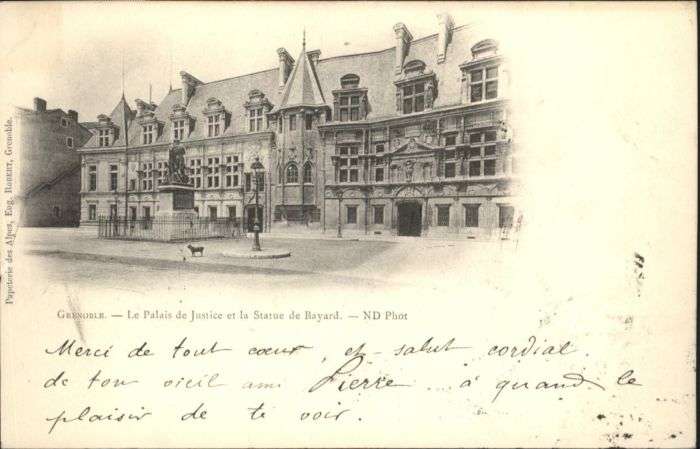 Papeterie des Alpes, Eug. ROBERT, Grenoble.
GRENOBLE. — Le Palais de Justice et la Statue de Bayard. — ND Phot
Merci de tout cœur, et salut cordial
de ton vieil ami Pierre ... à quand le
plaisir de te voir.